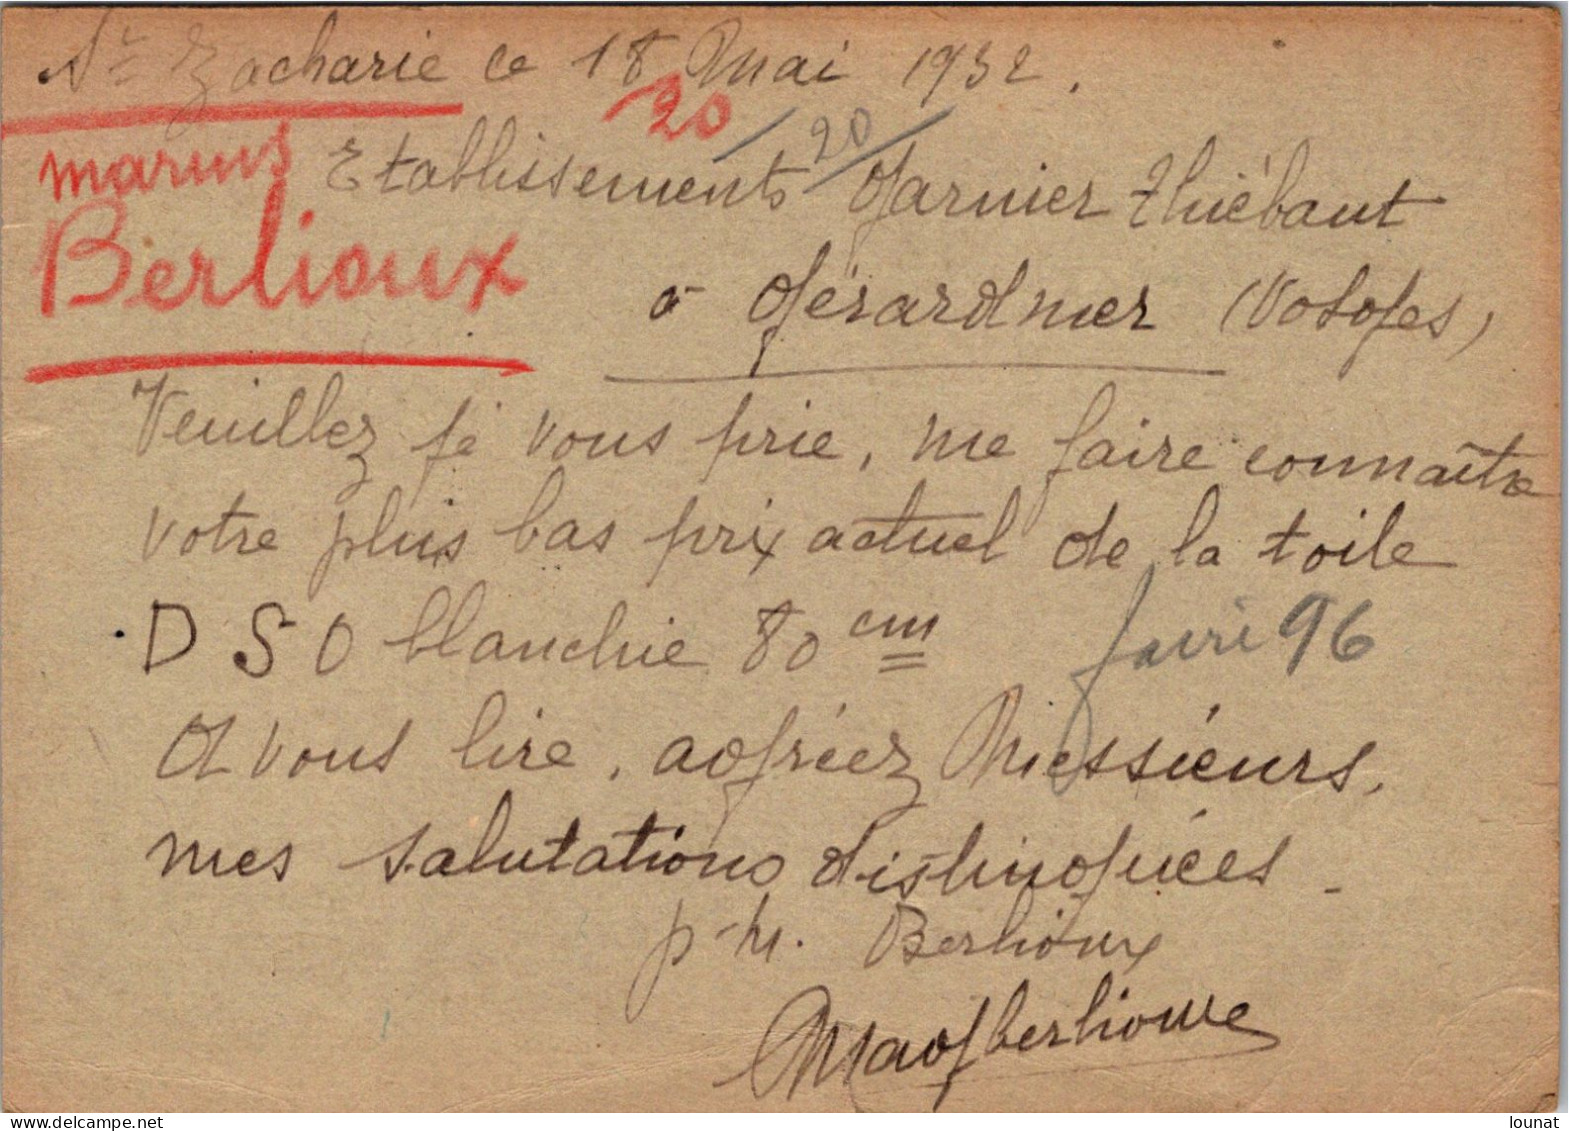 St Zacharie ce 18 Mai 1932.
20
20
marius
Berlioux
Etablissements Garnier Thiébaut
à Gérardmer (Vosges)
Veuillez je vous prie, me faire connaître
votre plus bas prix actuel de la toile
D S O blanchie 80 cm
96
A vous lire, agréez Messieurs,
mes salutations distinguées.
p-M. Berlioux
lounat